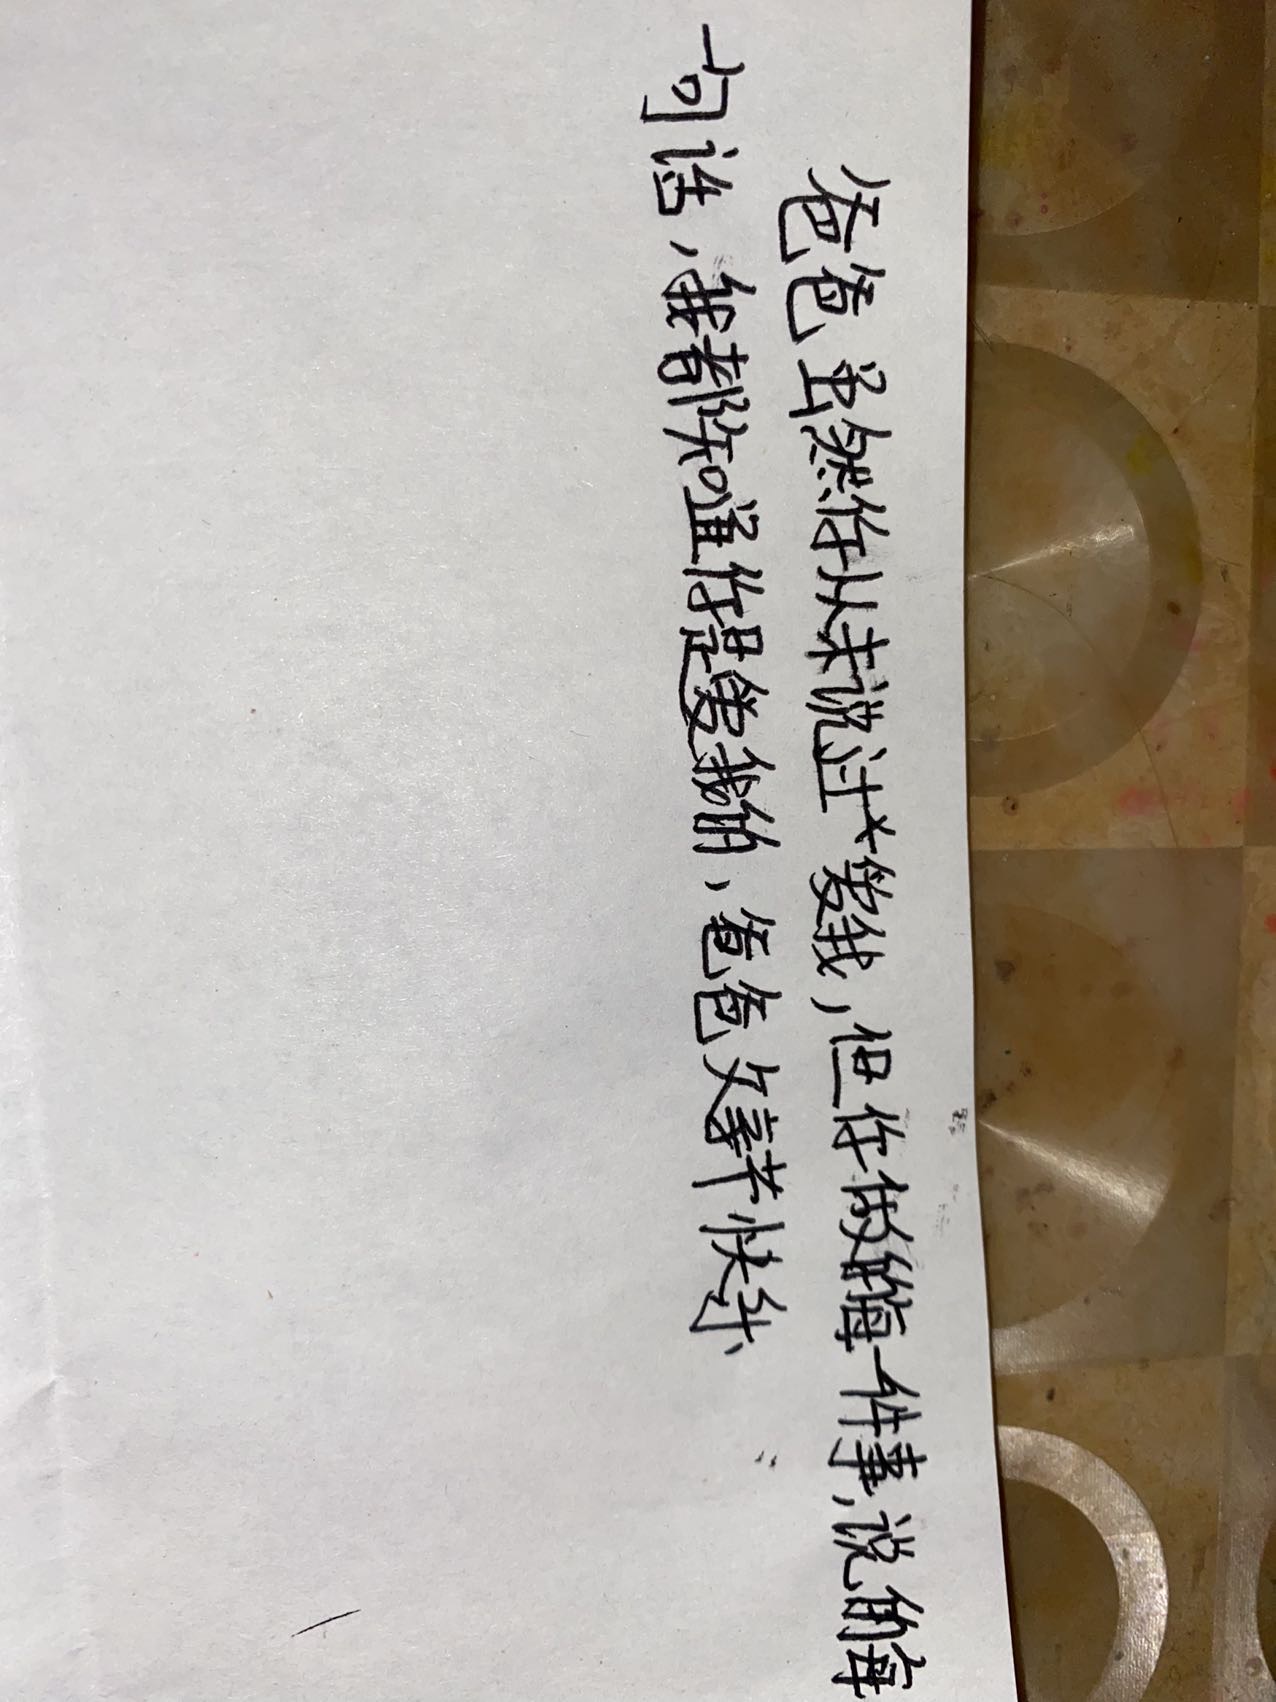 爸爸虽然你从未说过爱我,但你做的每一件事,说的每
一句话,我都知道你是爱我的,爸爸父亲节快乐